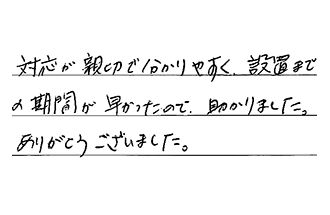 対応が親切で分かりやすく、設置まで
の期間が早かったので、助かりました。
ありがとうございました。